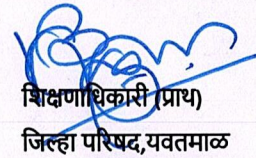 शिक्षणाधिकारी (प्राथ)
जिल्हा परिषद,यवतमाळ